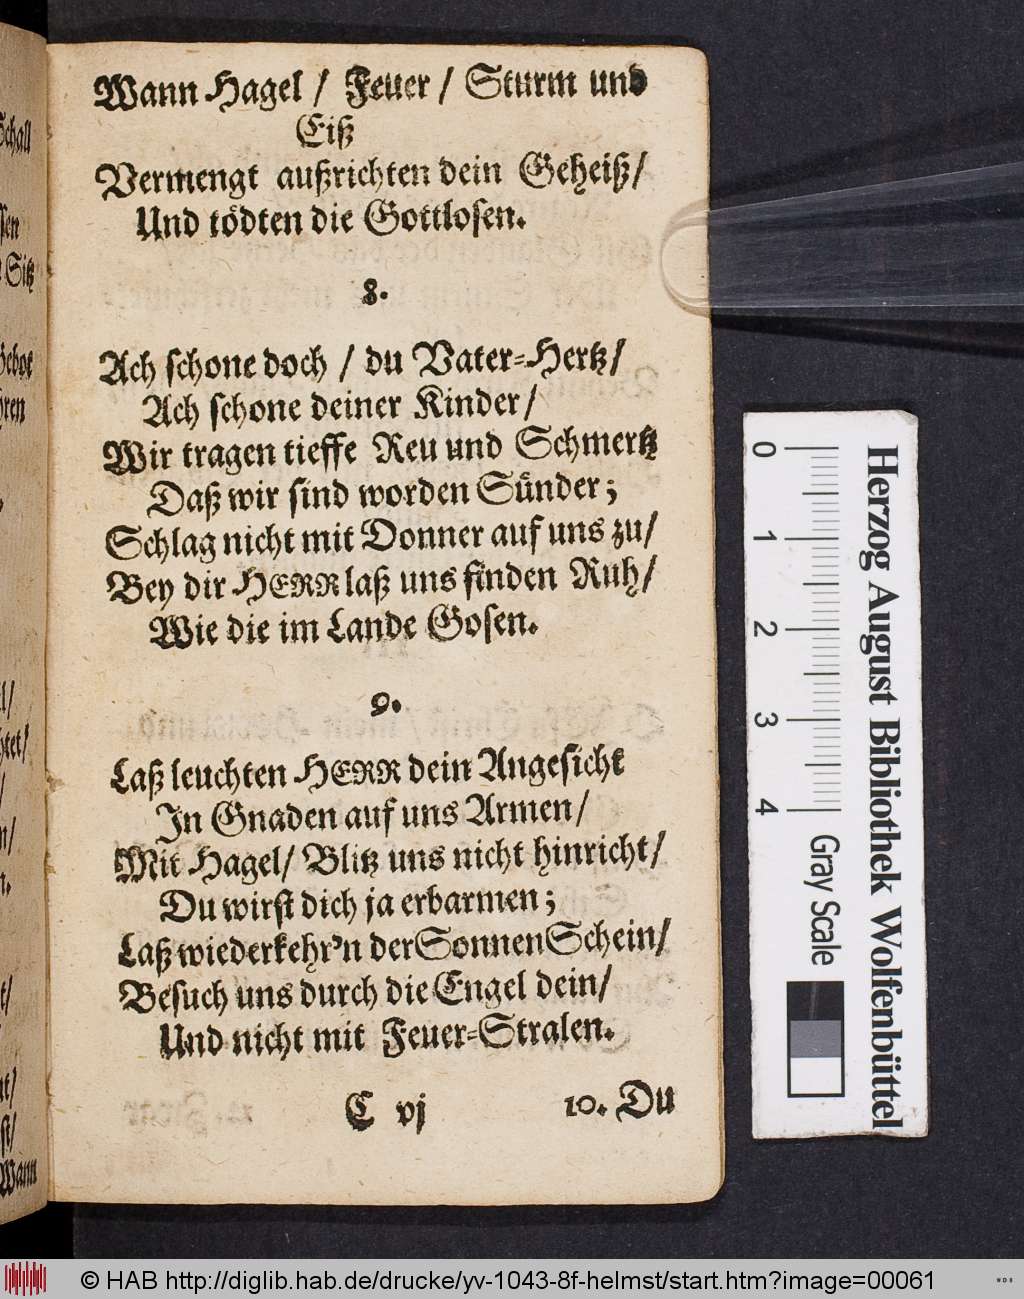 Wann Hagel / Feuer / Sturm und
Eiß
Vermengt außrichten dein Geheiß /
Und tödten die Gottlosen.
8.
Ach schone doch / du Vater-Hertz /
Ach schone deiner Kinder /
Wir tragen tieffe Reu und Schmertz
Daß wir sind worden Sünder;
Schlag nicht mit Donner auf uns zu /
Bey dir HERR laß uns finden Ruh /
Wie die im Lande Gosen.
9.
Laß leuchten HERR dein Angesicht
In Gnaden auf uns Armen /
Mit Hagel / Blitz uns nicht hinricht /
Du wirst dich ja erbarmen;
Laß wiederkehr'n der Sonnen Schein /
Besuch uns durch die Engel dein /
Und nicht mit Feuer-Stralen.
C vj
10. Du
Schall
Sitz
Wann
0 1 2 3 4
Gray Scale
Herzog August Bibliothek Wolfenbüttel
© HAB http://diglib.hab.de/drucke/yv-1043-8f-helmst/start.htm?image=00061